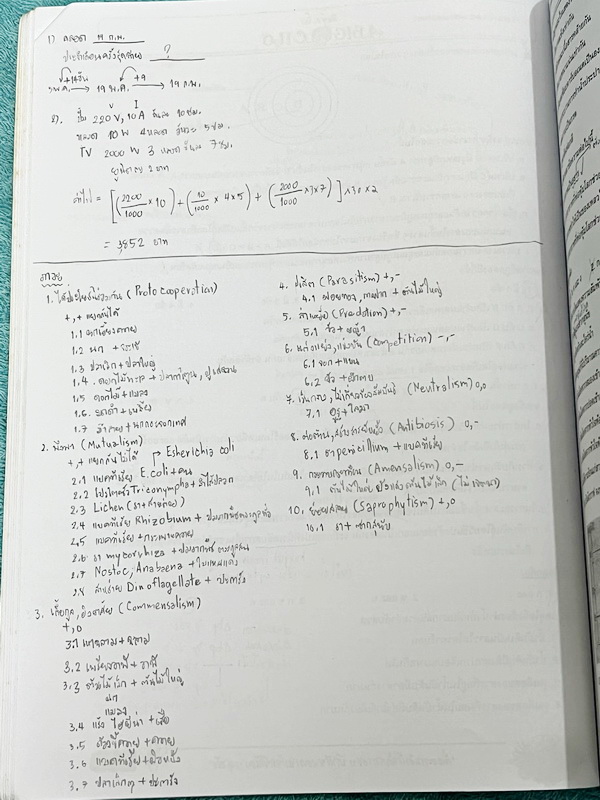 1) คลอด 19 ก.พ.
ประจำเดือนครั้งสุดท้าย ?
+14วัน +9
พ.ค. → 19 พ.ค. → 19 ก.พ.
V I
2). 220 V, 10 A 10 ชม.
หลอด 10 W 4 หลอด 5 ชม.
TV 2000 W 3 7 ชม.
ยูนิตละ 2 บาท
ค่าไฟ = [(2200/1000 × 10) + (10/1000 × 4 × 5) + (2000/1000 × 3 × 7)] × 30 × 2
= 3,852 บาท
1. ได้ประโยชน์ร่วมกัน (Protocooperation)
+,+ แยกกันได้
1.1 นกเอี้ยง+ควาย
1.2
1.3 ปลาเล็ก + ปลาใหญ่
1.4 ดอกไม้ทะเล + ปลาการ์ตูน, ปูเสฉวน
1.5 ดอกไม้ + แมลง
1.6 มดดำ + เพลี้ย
1.7
2. พึ่งพา (Mutualism)
+,+ แยกกันไม่ได้ → Escherichia coli
2.1 แบคทีเรีย E.coli + คน
2.2 โปรโตซัว Triconympha + ลำไส้ปลวก
2.3 Lichen (รา+สาหร่าย)
2.4 แบคทีเรีย Rhizobium + ปมรากพืชตระกูลถั่ว
2.5 แบคทีเรีย + กระเพาะควาย
2.6 รา mycorrhiza + ปมรากพืชตระกูลสน
2.7 Nostoc, Anabaena + ใบแหนแดง
2.8 สาหร่าย Dinoflagellate + ปะการัง
3. เกื้อกูล, อิงอาศัย (Commensalism)
+,0
3.1 เหาฉลาม + ฉลาม
3.2 เพรียงหอย + วาฬ
3.3 ต้นไม้เล็ก + ต้นไม้ใหญ่
นก
แมลง
3.4 แร้ง ไฮยีน่า + เสือ
3.5 ด้วงขี้ควาย + ควาย
3.6 แบคทีเรีย + ผิวหนัง
3.7 ปลาเล็กๆ + ปะการัง
4. ปรสิต (Parasitism) +,-
4.1 ฝอยทอง, กาฝาก + ต้นไม้ใหญ่
5. ล่าเหยื่อ (Predation) +,-
5.1 วัว + หญ้า
6. แก่งแย่ง, แข่งขัน (Competition) -,-
6.1 จอก + แหน
6.2
7. เป็นกลาง, ไม่เกี่ยวข้องสัมพันธ์ (Neutralism) 0,0
7.1
8. ต่อต้าน, สร้างสารยับยั้ง (Antibiosis) 0,-
8.1 รา penicillium + แบคทีเรีย
9. (Amensalism) 0,-
9.1 ต้นไม้ใหญ่ บังแสงต้นไม้เล็ก (ไม่เจตนา)
10. ย่อยสลาย (Saprophytism) +,0
10.1 รา + ซากสุนัข